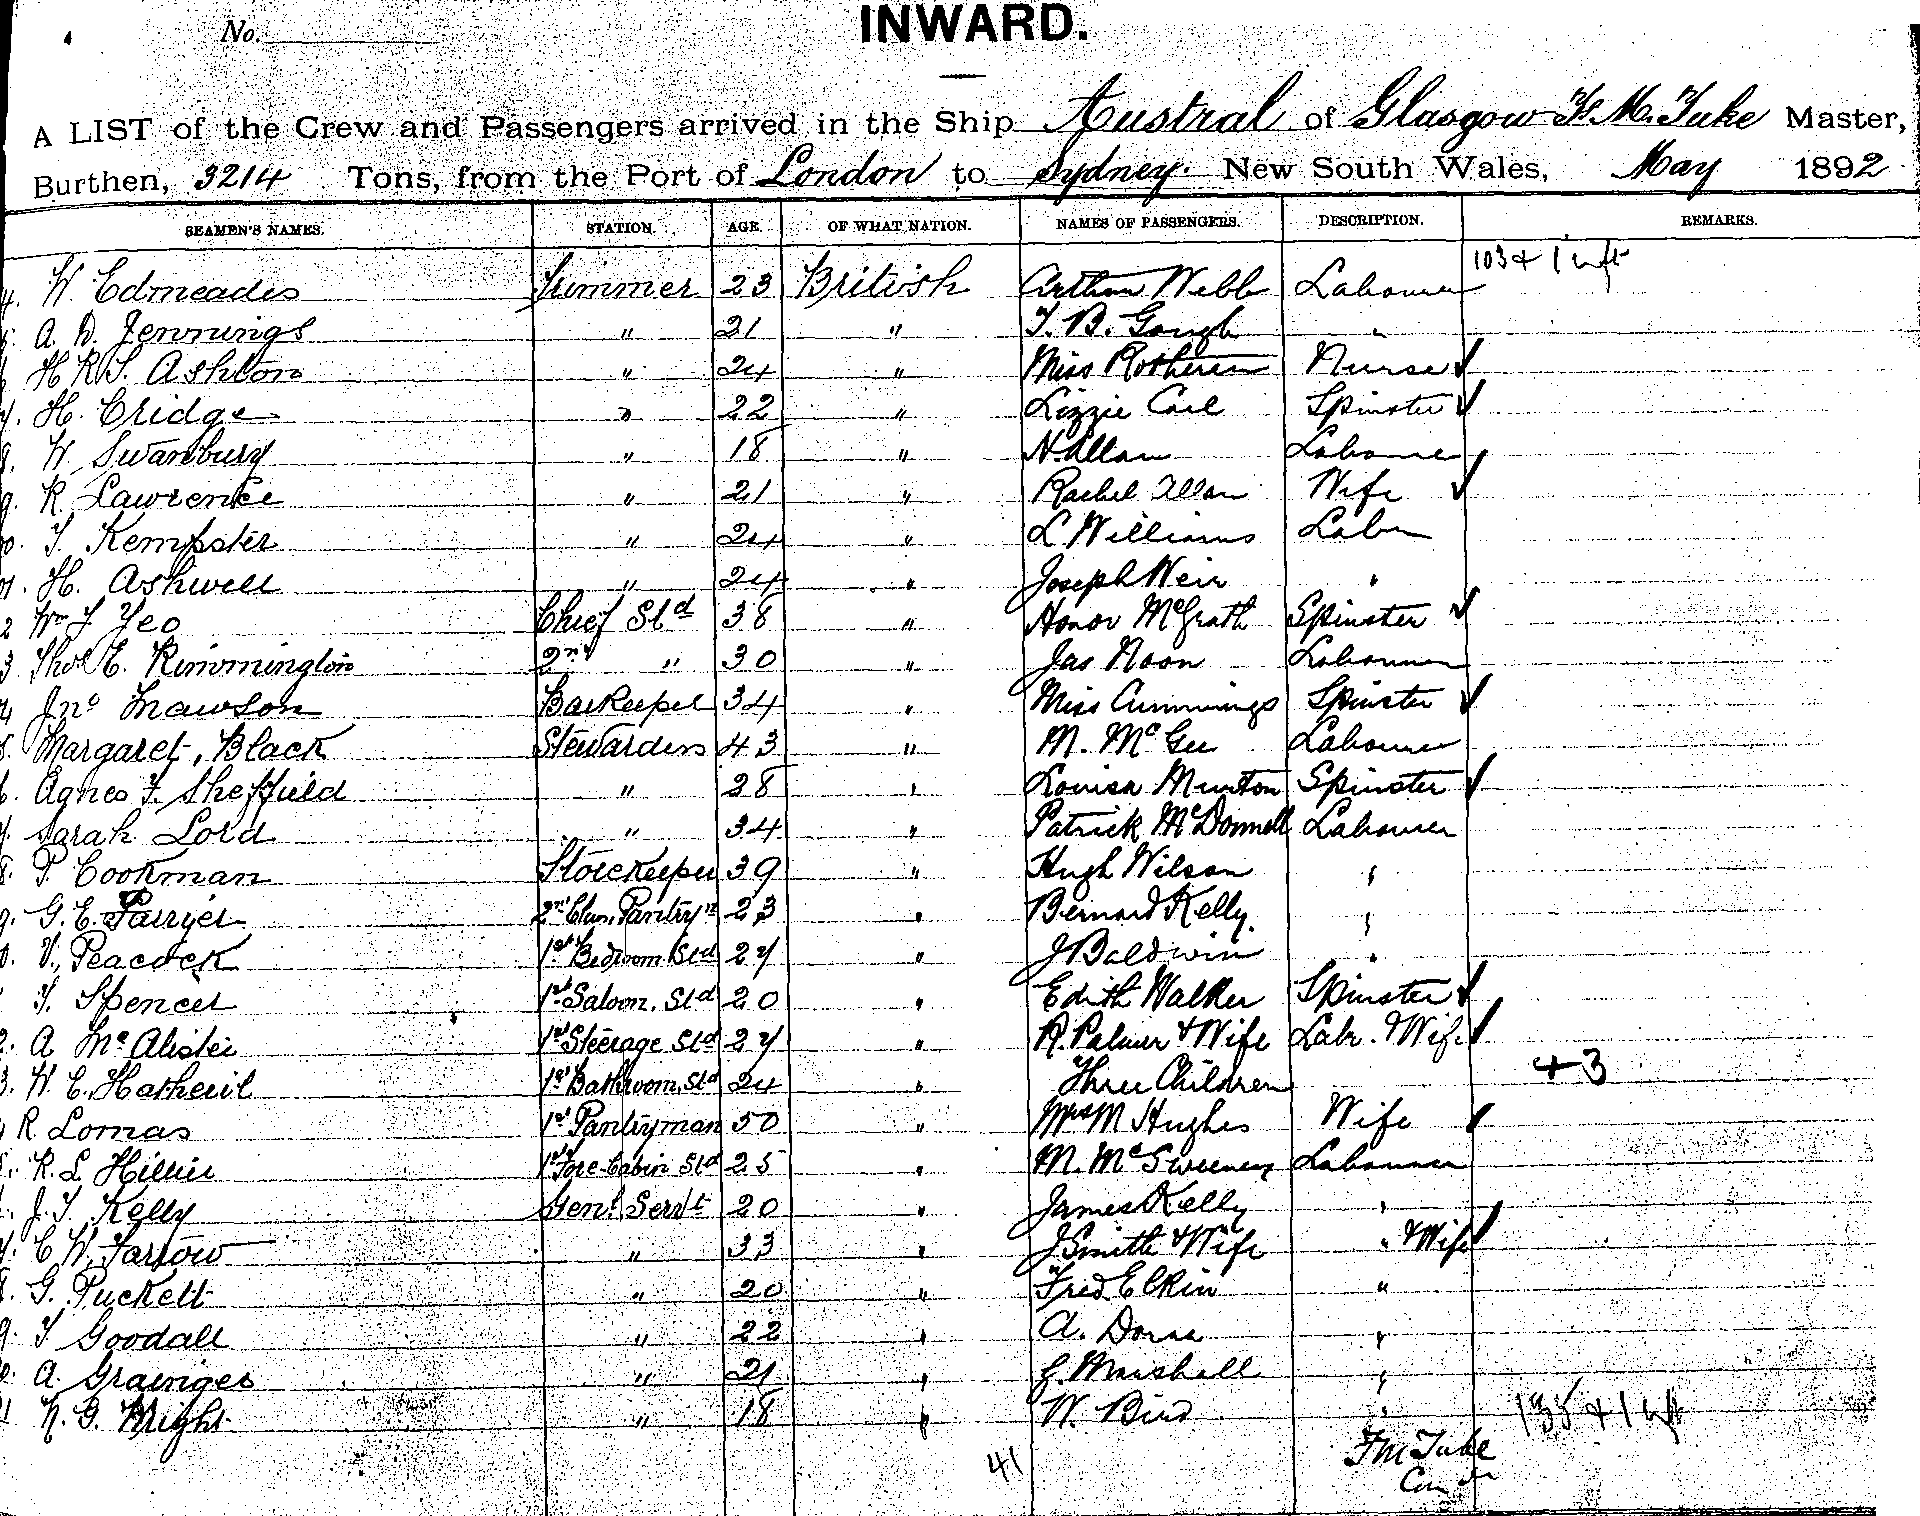 No.
INWARD.
A LIST of the Crew and Passengers arrived in the Ship Austral of Glasgow F. M. Tuke Master,
Burthen, 3214 Tons, from the Port of London to Sydney. New South Wales, May 1892
SEAMEN'S NAMES. STATION. AGE. OF WHAT NATION. NAMES OF PASSENGERS. DESCRIPTION. REMARKS.
103 + 1 inft
W. Edmeades Trimmer 23 British Arthur Webb Labourer
A. D. Jennings " 21 " T. B. Gough "
H R S. Ashton " 24 " Miss Rotheren Nurse ✓
H. Cridge " 22 " Lizzie Carl Spinster ✓
W. Swanbury " 18 " N Allan Labourer
R. Lawrence " 21 " Rachel Allan Wife ✓
T. Kempster " 24 " L Williams Labr
H. Ashwell " 24 " Joseph Weir "
Wm T Yeo Chief Std 38 " Honor McGrath Spinster ✓
Thos E. Rimmington 2nd " 30 " Jas Noon Labourer
Jno Mawson Barkeeper 34 " Miss Cummings Spinster ✓
Margaret Black Stewardess 43 " M. McGee Labourer
Agnes F. Sheffield " 28 " Louisa Munton Spinster ✓
Sarah Lord " 34 " Patrick McDonnell Labourer
P. Cookman Storekeeper 39 " Hugh Wilson "
G. E. Parryer 2nd Clas. Pantryn 23 " Bernard Kelly. "
V. Peacock 1st Bedroom Std 27 " J Baldwin "
T. Spencer 1st Saloon. Std 20 " Edith Walker Spinster ✓
A McAlister 1st Steerage Std 27 " R. Palmer & Wife Labr. & Wife ✓
W. E. Hatheril 1st Bathroom Std 24 " Three Children + 3
R Lomas 1st Pantryman 50 " Mrs M Hughes Wife ✓
R. L. Hillier 1st Fore Cabin Std 25 " M. McSweeney Labourer
J. T. Kelly Genl Servt 20 " James Kelly "
C. W. Farrow " 33 " J Smith & Wife " & Wife ✓
G. Puckett " 20 " Fred Elkin "
T Goodall " 22 " A. Doraa "
A. Grainger " 21 " E Marshall "
N. G. Wright " 18 " W. Bird "
135 + 1 inft
41
F M Tuke